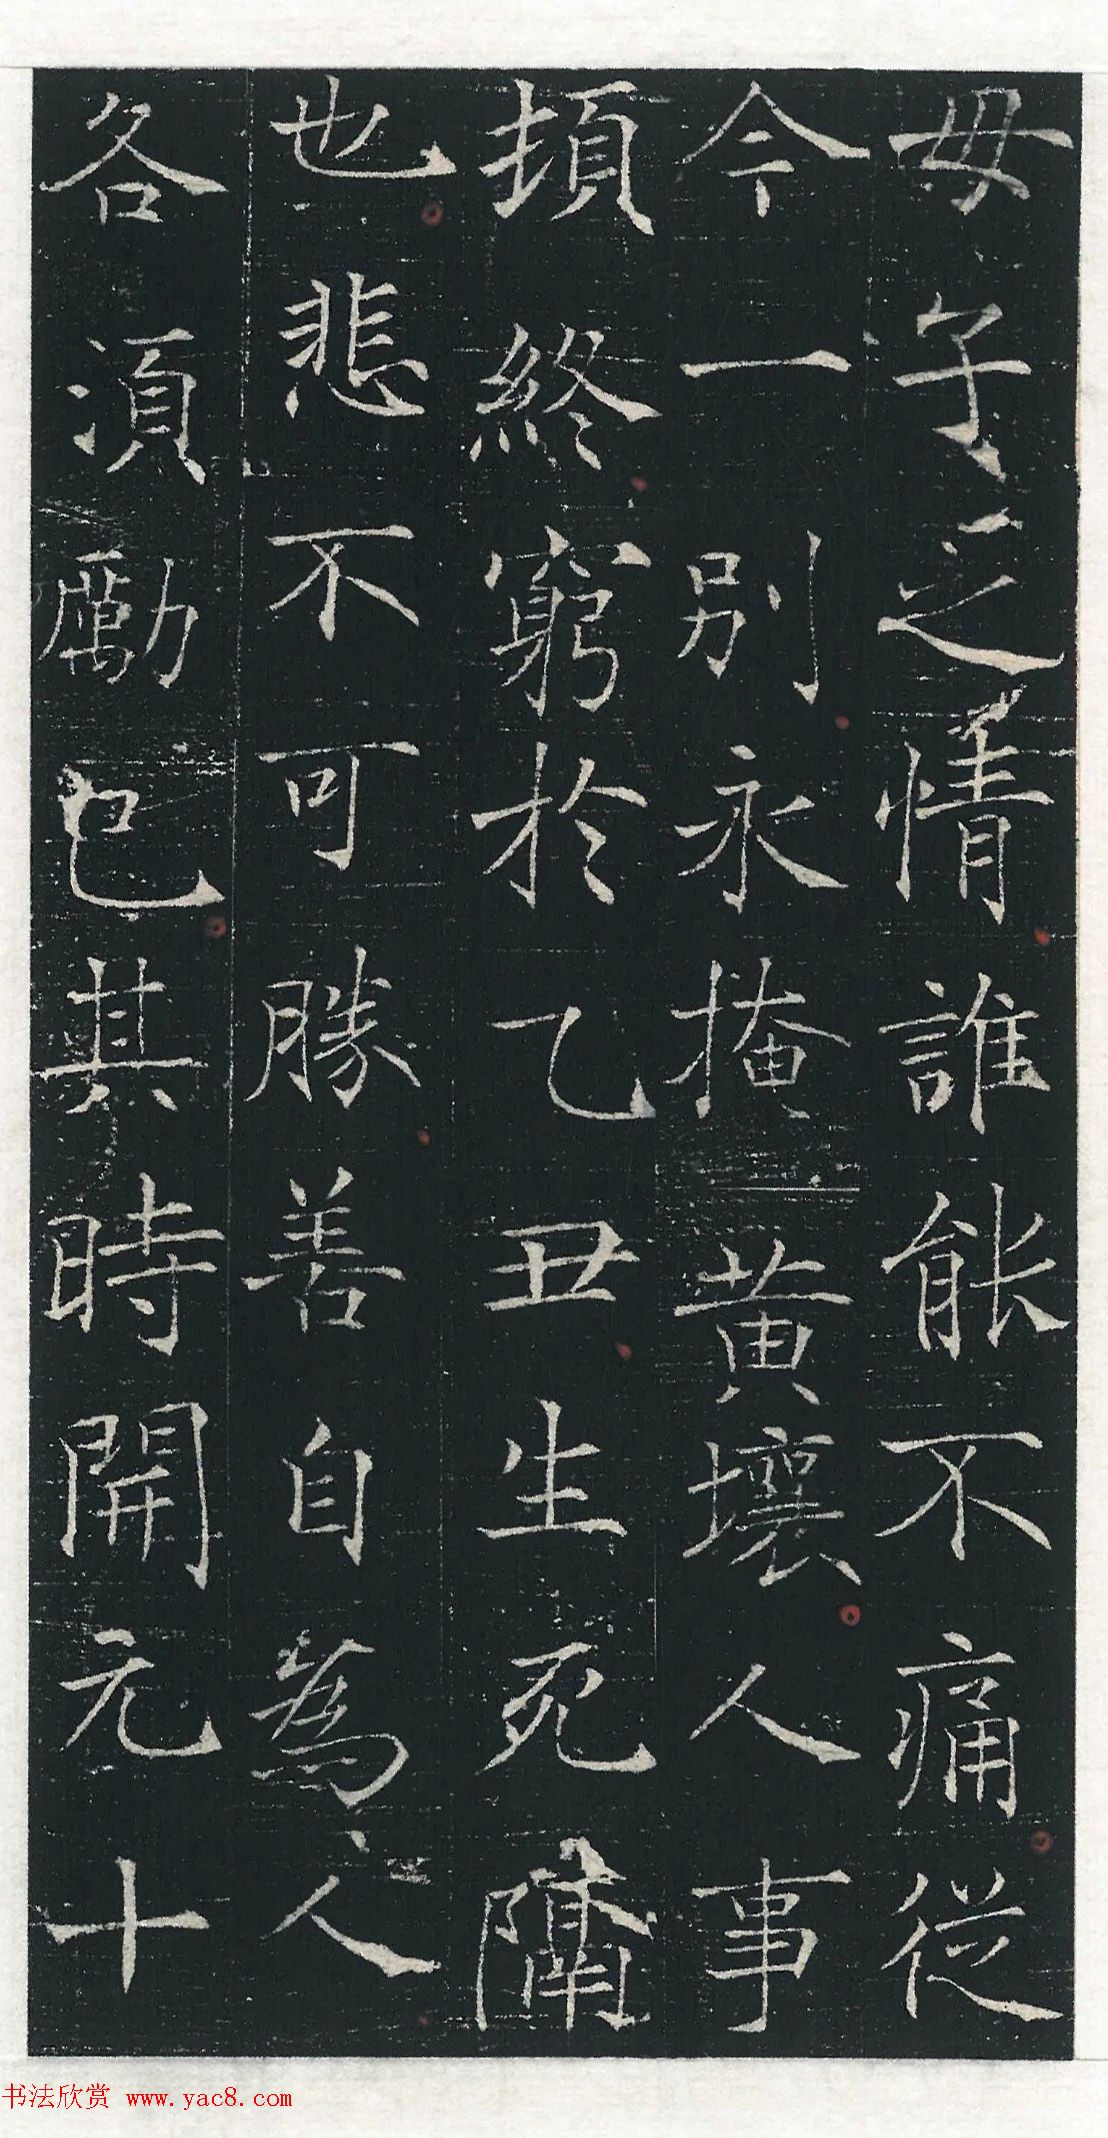 母子之情誰能不痛從
今一別永掩黃壤人事
頓終窮於乙丑生死隔
也悲不可勝善自為人
各須勵已其時開元十
书法欣赏 www.yac8.com